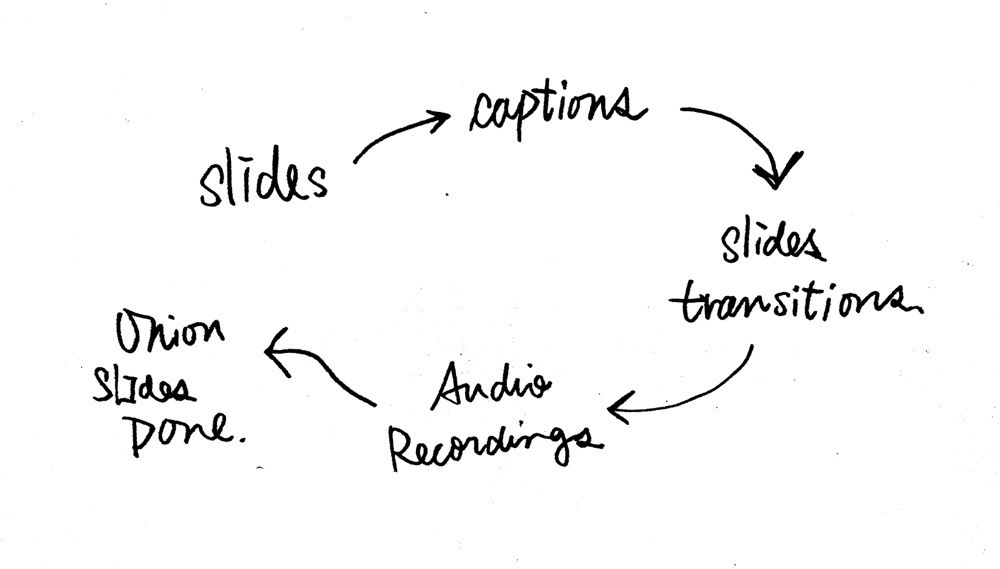 slides
captions
slides
transitions.
Audio
Recordings
Union
Slides
Done.